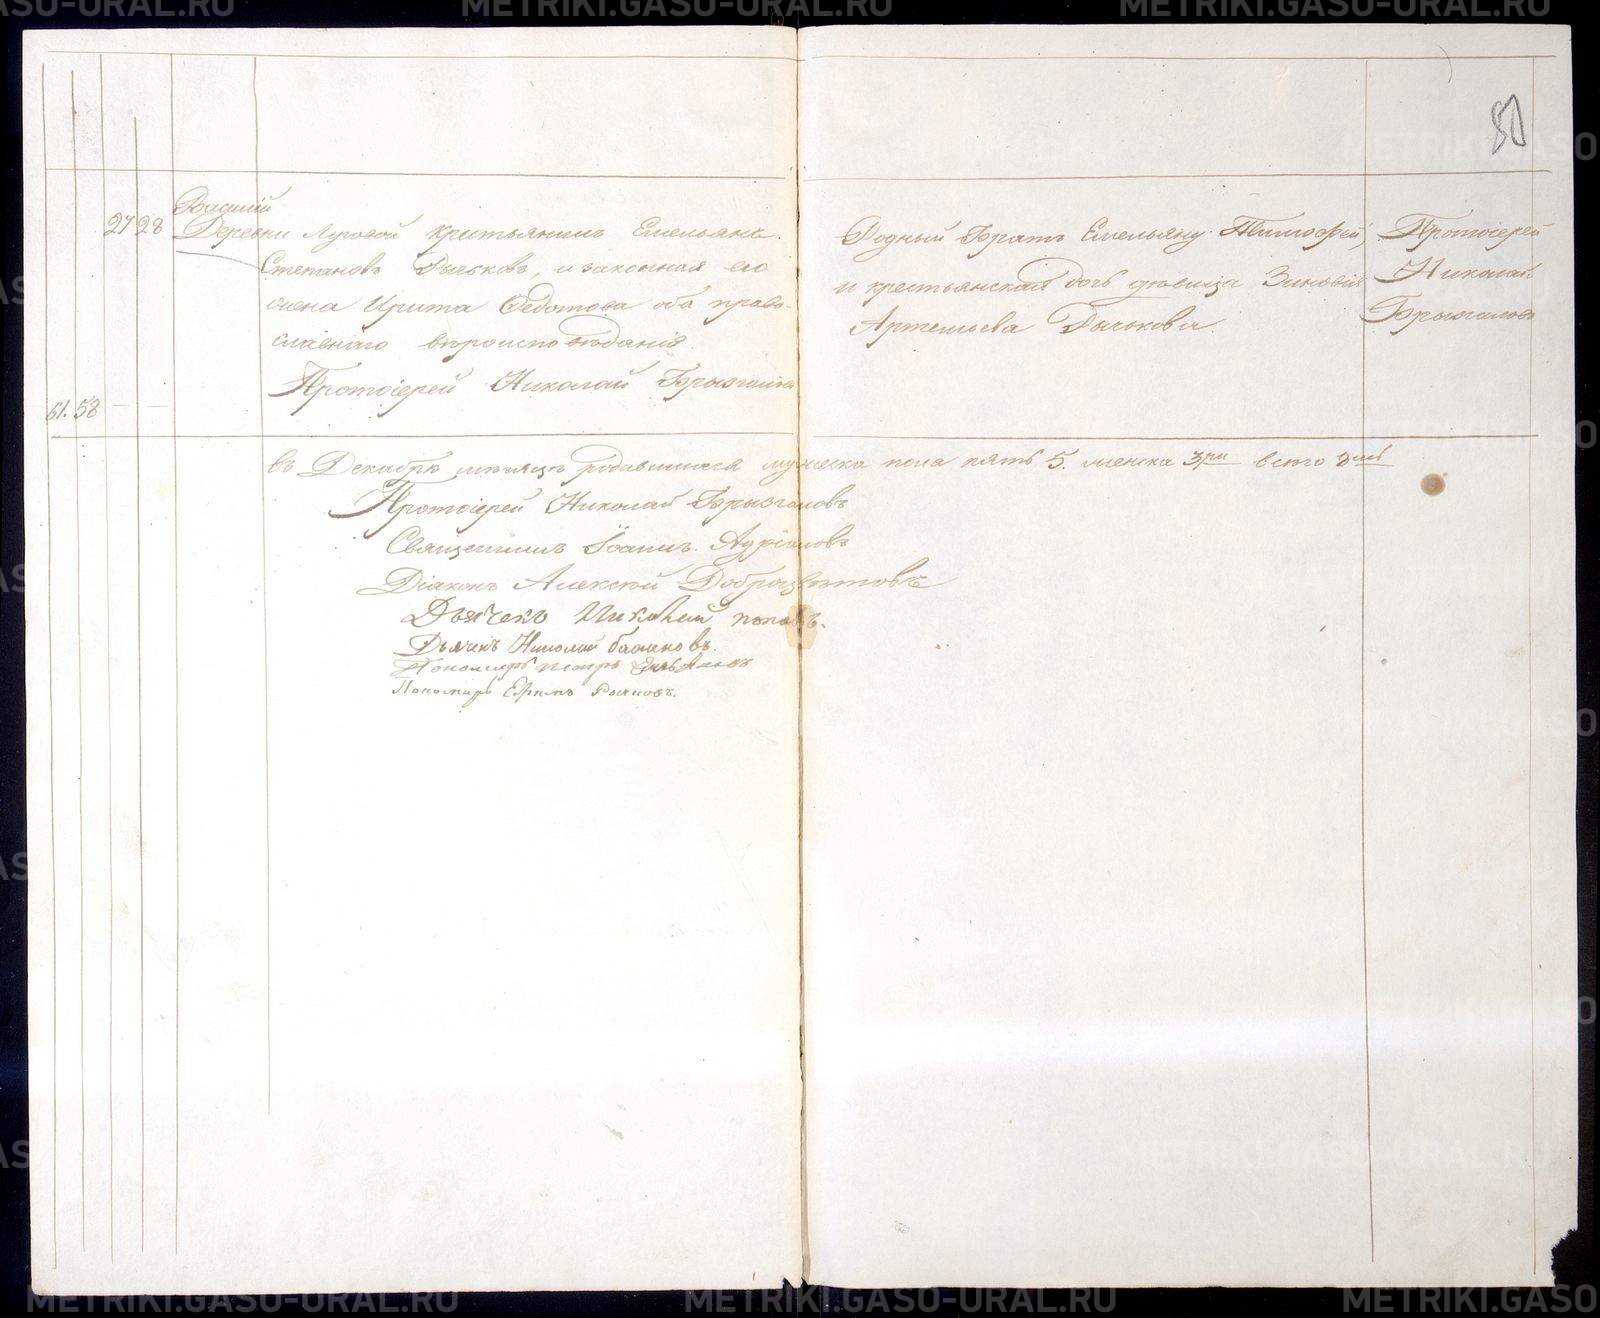 80
27 28 Василій
Деревни Луговой крестьянинъ Емельянъ
Степановъ Рычковъ, и законная его
жена Ирина Федотова оба право-
славнаго вѣроисповѣданія.
Протоіерей Николай Брызгаловъ
61. 58 — —
Родный братъ Емельяну Тимофей,
и крестьянская дочь дѣвица Зиновія
Артемьева Рычкова.
Протоіерей
Николай
Брызгаловъ
въ Декабрѣ мѣсяцѣ родившихся мужеска пола пять 5. женска 3ри всего 8мь
Протоіерей Николай Брызгаловъ
Священникъ Іоаннъ Адріановъ
Діаконъ Алексѣй Доброцвѣтовъ
Дьячекъ Николай поповъ.
Дьячекъ Николай
Пономарь петръ
Пономарь Ефимъ Рычковъ.
METRIKI.GASU-URAL.RU